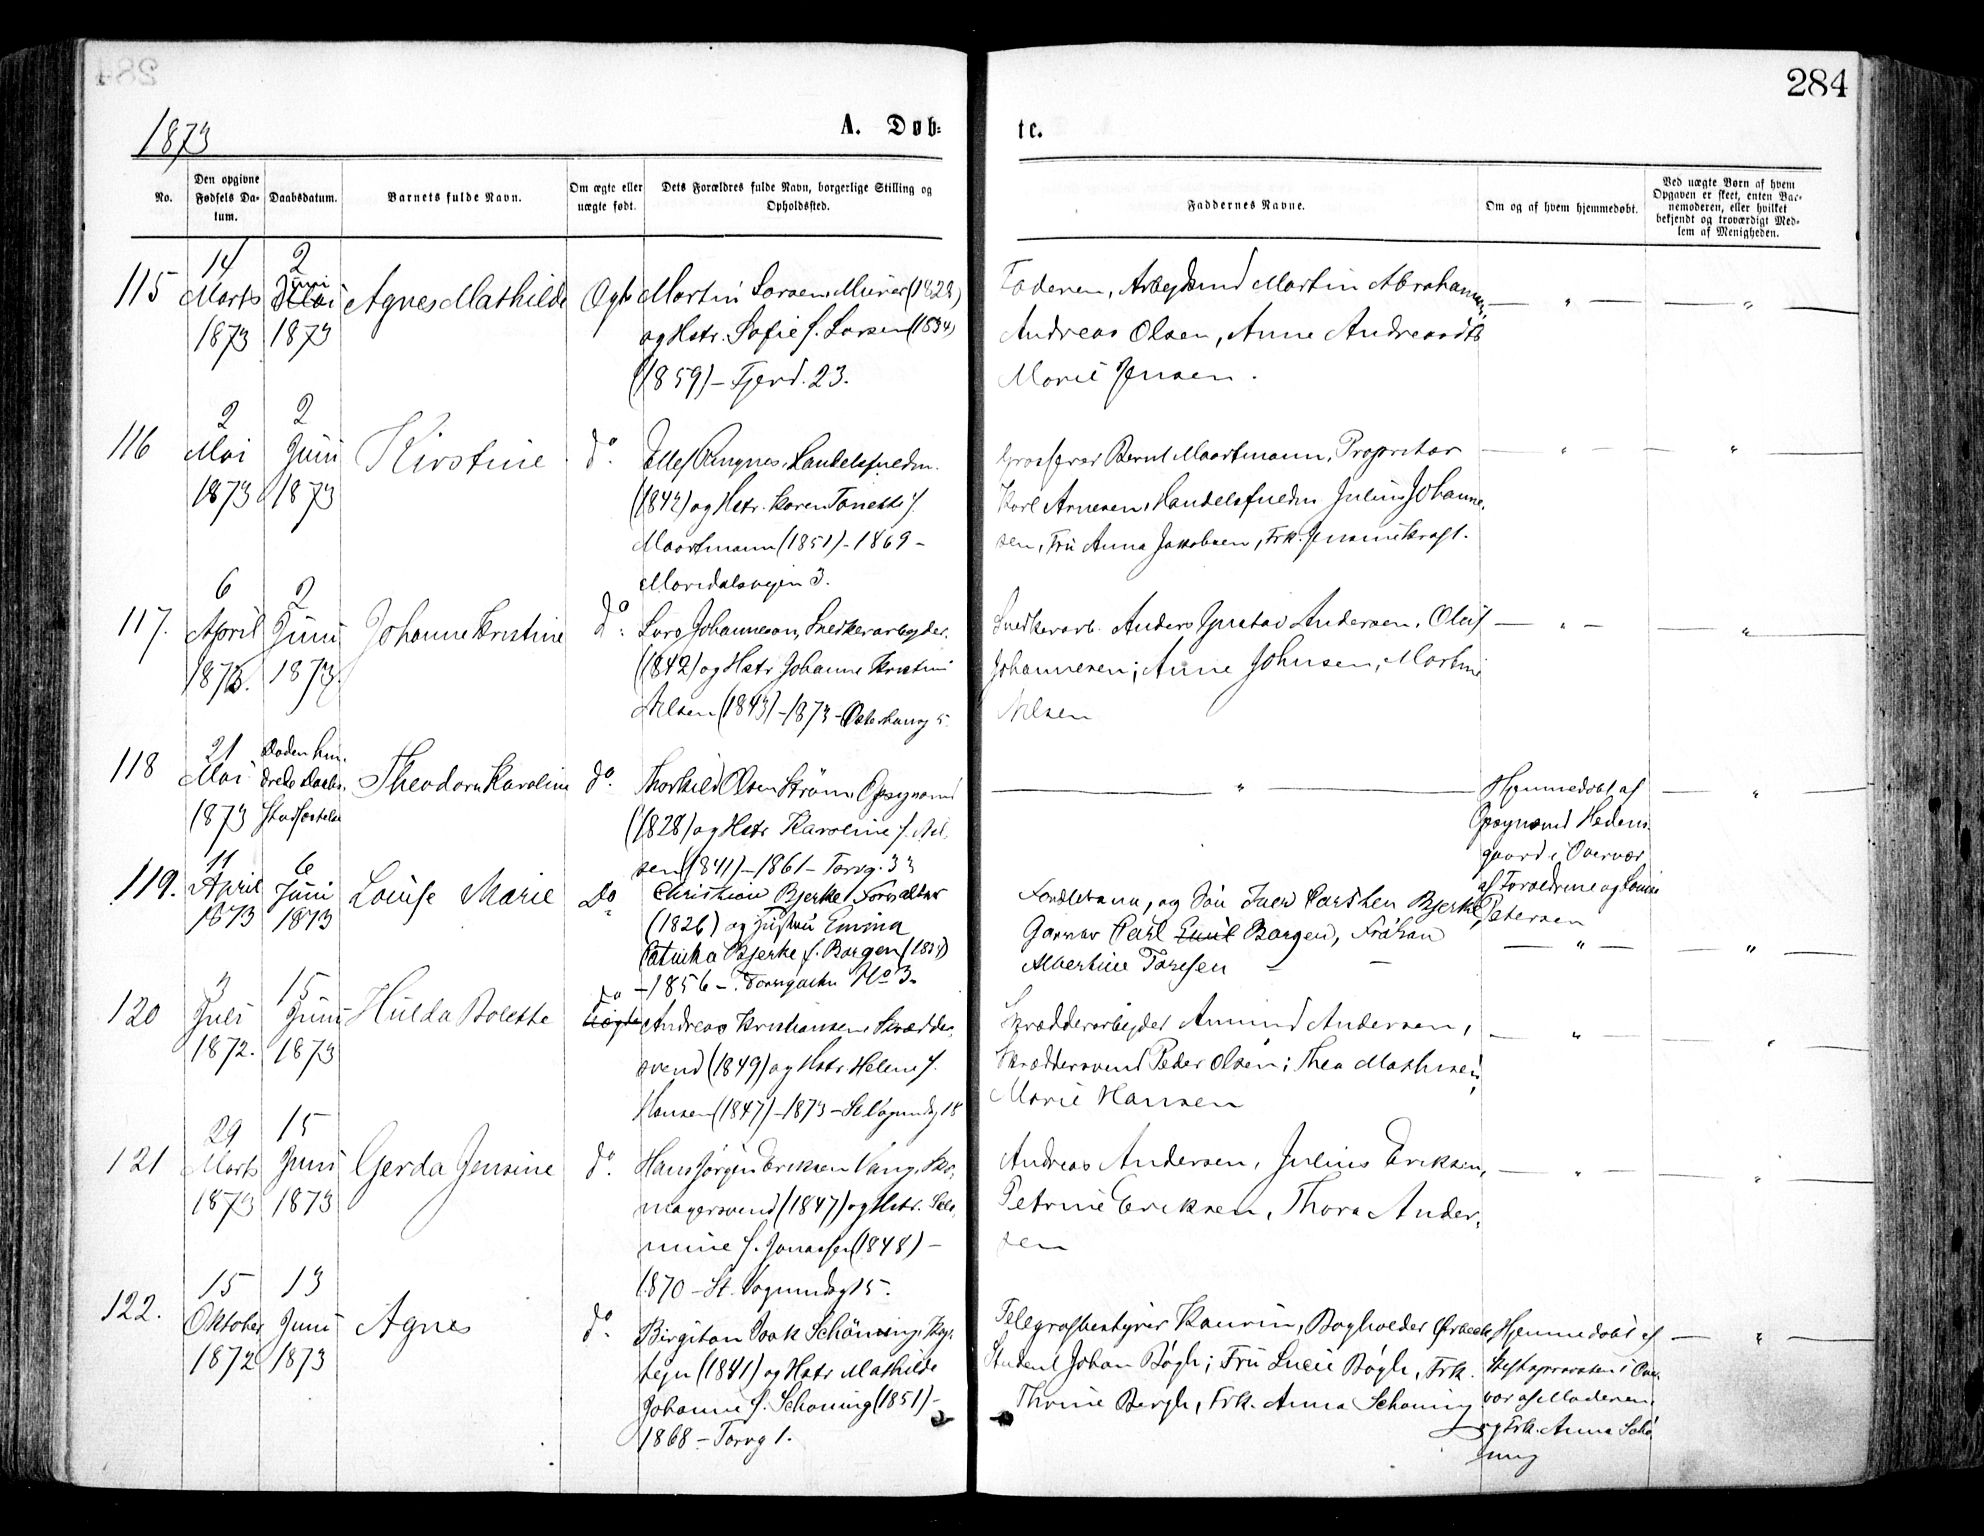 284
1873
A. Døb=
te.
No.
Den opgivne Fødsels Da-tum.
Daabsdatum.
Barnets fulde Navn.
Om ægte eller uægte født.
Dets Forældres fulde Navn, borgerlige Stilling og Opholdssted.
Faddernes Navne.
Om og af hvem hjemmedøbt.
Ved uægte Børn af hvem Opgaven er skeet, enten Bar-nemoderen, eller hvilket bekjendt og troværdigt Med-lem af Menigheden.
115
14 Marts 1873
2 Juni Mai 1873
Agnes Mathilde
Ægte
Martin Larsen, Murer (1829)
og Hstr. Sofie f. Larsen (1834)
(1859) – Fjerd. 23.
Faderen, Arbejdsmd Martin Abrahamsen,
Andreas Olsen, Anne Andreasdt
Marie Jensen.
116
2 Mai 1873
2 Juni 1873
Kirstine
do.
Ellef Ringnes, Handelsfuldm.
(1842) og Hstr. Karen Tonette f.
Maartmann (1851) – 1869 –
Maridalsvejen 3.
Grosserer Bernt Maartmann, Proprietær
Karl Arnesen, Handelsfuldm Julius Johanne-
sen, Fru Anna Jakobsen, Frk. Jensine Kraft.
117.
6 April 1873.
2 Juni 1873.
Johanne Kristine
do.
Lars Johannesen, Snedkerarbejder.
(1842) og Hstr Johanne Kristine
Nilsen (1843) – 1873 – Osterhausg 5
Snedkerarb. Anders Gustav Andersen, Oluf
Johannesen; Anne Johnsen, Martine
Nilsen
118
21 Mai 1873
Døden hin-
drede Daabs-
stadfæstelse
Theodora Karoline
do.
Thorkild Olsen Strøm, Opsynsmd
(1828) og Hstr Karoline f. Nil-
sen (1841) – 1861 – Torvg. 33
Hjemmedøbt af
Opsynsmd Hedens-
gaard i Overvær
af Forældrene og Louise
Petersen
119.
11 April 1873
6 Juni 1873
Louise Marie
Do
Christian Bjerke Forvalter
(1826) og Hustru Emina
Catinka Bjerke f. Borgen (1831)
– 1856 – Torvgaden No 3.
Forældrene, og Søn Iver Carsten Bjerke,
Garver Carl Emil Borgen, Frøken
Albertine Toresen
120
3 Juli 1872.
15 Juni 1873
Hulda Bolette
do
Uægte
Andreas Kristiansen, Skrædder-
svend (1849) og Hstr Helene f.
Hansen (1847) – 1873 – St Vognmdsg 18
Skrædderarbejder Amund Andersen,
Skræddersvend Peder Olsen; Thea Mathisen,
Marie Hansen
121
29 Marts 1873
15 Juni 1873
Gerda Jensine
do.
Hans Jørgen Eriksen Vang, Sko-
magersvend (1847) og Hstr. Sele-
mine f. Jonassen (1848) –
1870 – St. Vognmdsg 15.
Andreas Andersen, Julius Eriksen,
Petrine Eriksen, Thora Ander-
sen
122.
15 Oktober 1872
13 Juni 1873
Agnes
do.
Birgitan Voak Schöning, Kap-
tejn (1841) og Hstr Mathilde
Johanne f. Schøning (1851) –
1868 – Torvg 1.
Telegrafbestyrer Kaurin, Bogholder Ørbeck,
Student Johan Bøgh; Fru Lucie Bøgh, Frk.
Thrine Bergh, Frk. Anna Schøning
Hjemmedøbt af
Stiftsprovsten i Over-
vær af Moderen,
og Frk. Anna Schø-
ning